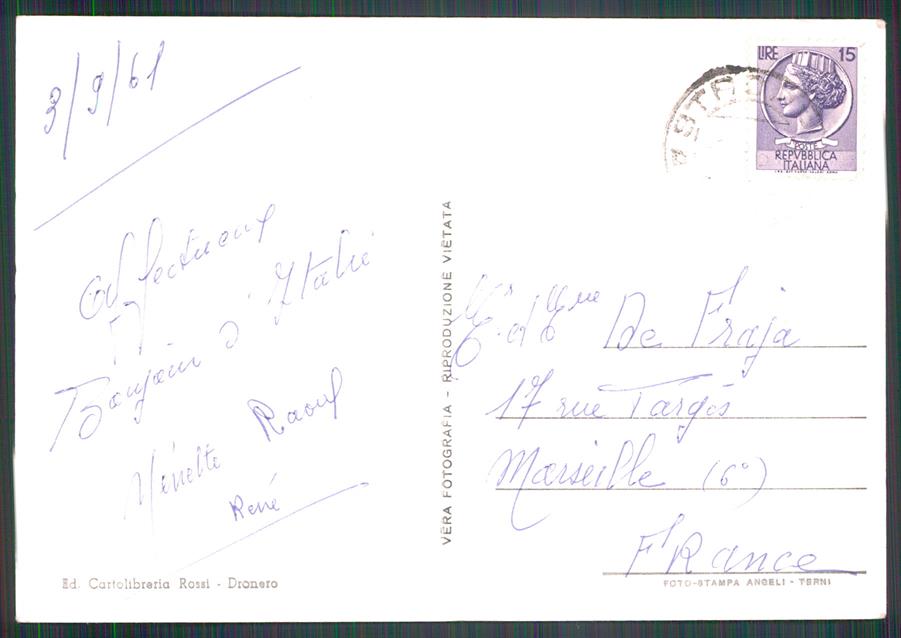 3/9/61
Affectueux
Bonjour d'Italie
Raoul
Nénette
René
Ed. Cartolibreria Rossi - Dronero
VERA FOTOGRAFIA - RIPRODUZIONE VIETATA
LIRE 15
POSTE
REPVBBLICA
ITALIANA
Mr et Mme De Fraja
17 rue Fargès
Marseille (6°)
FRance
FOTO-STAMPA ANGELI - TERNI